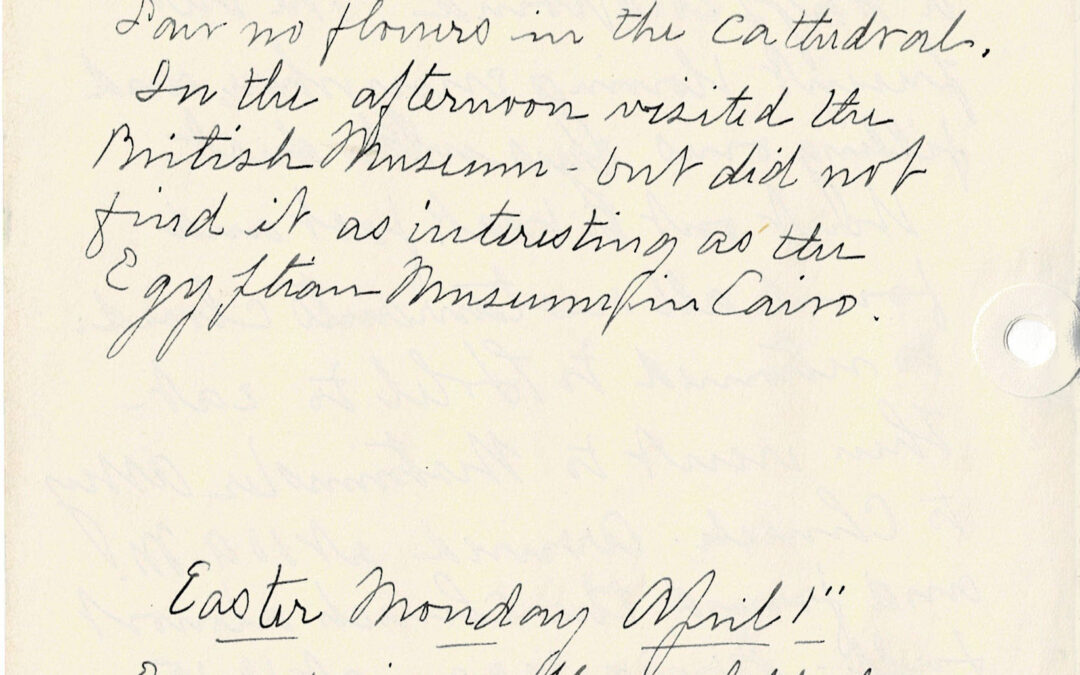 Saw no flowers in the Cathedral.
In the afternoon visited the
British Museum - but did not
find it as interesting as the
Egyptian Museum in Cairo.
Easter Monday April 1"